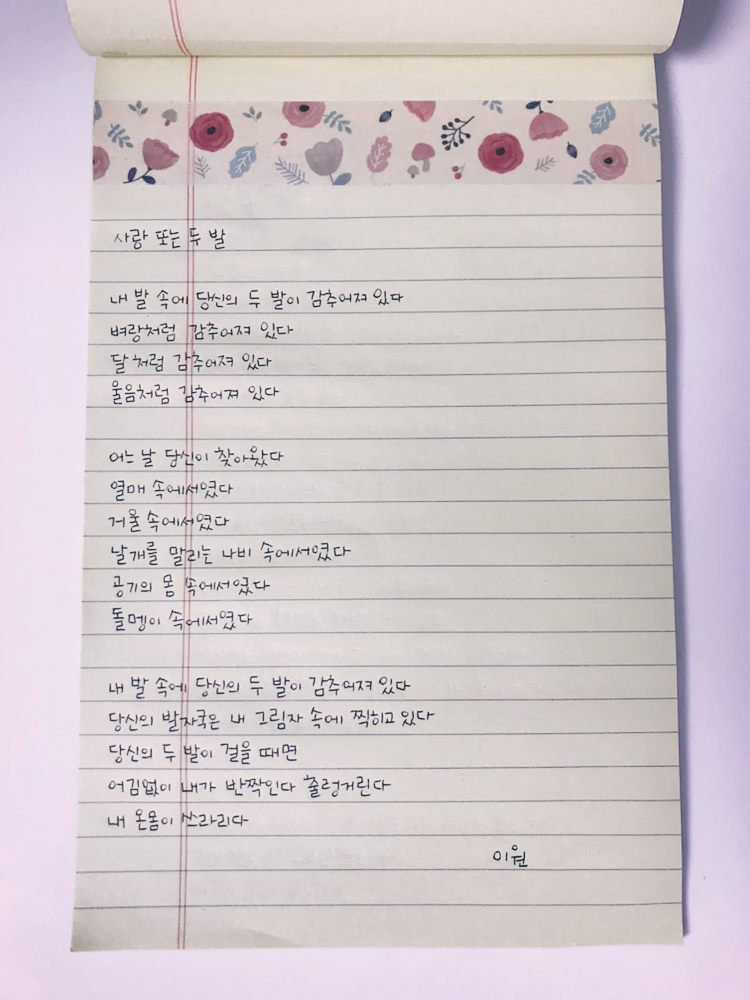 사랑 또는 두 발
내 발 속에 당신의 두 발이 감추어져 있다
벼랑처럼 감추어져 있다
달처럼 감추어져 있다
울음처럼 감추어져 있다
어느 날 당신이 찾아왔다
열매 속에서였다
거울 속에서였다
날개를 말리는 나비 속에서였다
공기의 몸 속에서였다
돌멩이 속에서였다
내 발 속에 당신의 두 발이 감추어져 있다
당신의 발자국은 내 그림자 속에 찍히고 있다
당신의 두 발이 걸을 때면
어김없이 내가 반짝인다 출렁거린다
내 온몸이 쓰라리다
이원